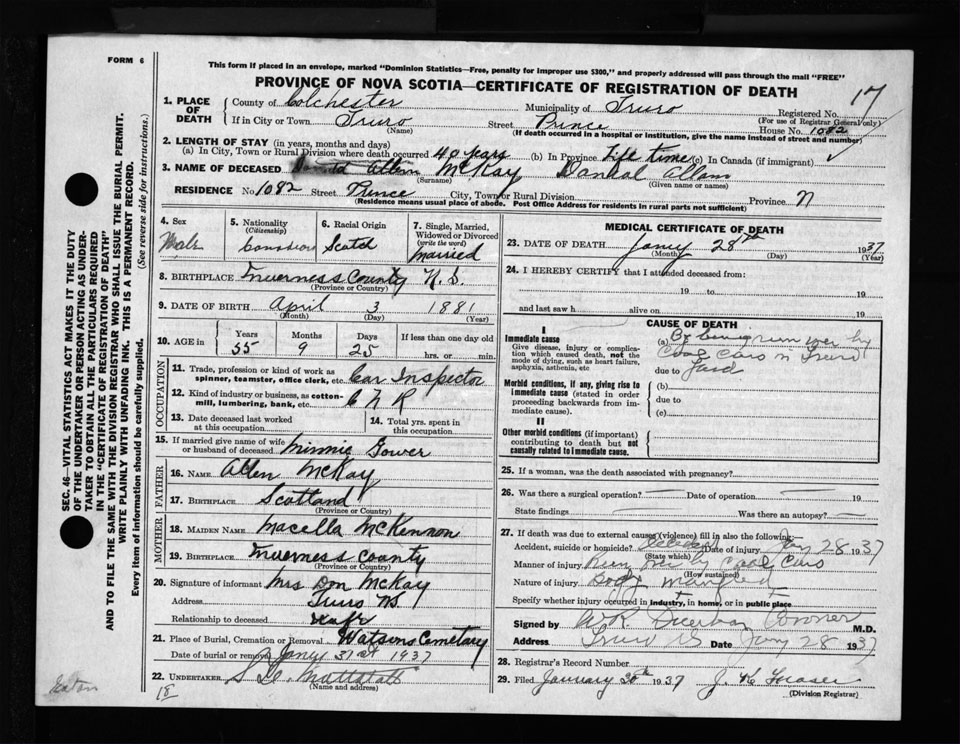 FORM 6
This form if placed in an envelope, marked "Dominion Statistics—Free, penalty for improper use $300," and properly addressed will pass through the mail "FREE"
PROVINCE OF NOVA SCOTIA—CERTIFICATE OF REGISTRATION OF DEATH
1. PLACE OF DEATH
County of Colchester Municipality of Truro Registered No. 17
(For use of Registrar General only)
If in City or Town Truro Street Prince House No. 1082
(Name) (If death occurred in a hospital or institution, give the name instead of street and number)
2. LENGTH OF STAY (in years, months and days)
(a) In City, Town or Rural Division where death occurred 40 years (b) In Province Life time (c) In Canada (if immigrant)
3. NAME OF DECEASED Allan McKay Allam
(Surname) (Given name or names)
RESIDENCE No. 1082 Street Prince City, Town or Rural Division Province N
(Residence means usual place of abode. Post Office Address for residents in rural parts not sufficient)
4. Sex Male
5. Nationality (Citizenship) Canadian
6. Racial Origin Scotch
7. Single, Married, Widowed or Divorced (write the word) Married
8. BIRTHPLACE Inverness County N.S.
(Province or Country)
9. DATE OF BIRTH April 3 1881
(Month) (Day) (Year)
10. AGE in Years 55 Months 9 Days 25 If less than one day old hrs. or min.
OCCUPATION
11. Trade, profession or kind of work as spinner, teamster, office clerk, etc. Car Inspector
12. Kind of industry or business, as cotton-mill, lumbering, bank, etc. C N R
13. Date deceased last worked at this occupation
14. Total yrs. spent in this occupation
15. If married give name of wife or husband of deceased Minnie Gower
FATHER
16. NAME Allen McKay
17. BIRTHPLACE Scotland
(Province or Country)
MOTHER
18. MAIDEN NAME Macella McKennon
19. BIRTHPLACE Inverness County
(Province or Country)
20. Signature of informant Mrs Don McKay
Address Truro NS
Relationship to deceased wife
21. Place of Burial, Cremation or Removal Watsons Cemetary
Date of burial or removal Jany 31st 1937
22. UNDERTAKER
(Name and address)
18
MEDICAL CERTIFICATE OF DEATH
23. DATE OF DEATH Jany 28th 1937
(Month) (Day) (Year)
24. I HEREBY CERTIFY that I attended deceased from:
19 to 19
and last saw h alive on 19
CAUSE OF DEATH
I
Immediate cause
Give disease, injury or complication which caused death, not the mode of dying, such as heart failure, asphyxia, asthenia, etc
(a) By being run over by
Coal Cars in Truro
due to Yard
Morbid conditions, if any, giving rise to immediate cause (stated in order proceeding backwards from immediate cause).
(b)
due to
(c)
II
Other morbid conditions (if important) contributing to death but not causally related to immediate cause.
25. If a woman, was the death associated with pregnancy?
26. Was there a surgical operation? Date of operation 19
State findings Was there an autopsy?
27. If death was due to external causes (violence) fill in also the following:
Accident, suicide or homicide? Accident Date of injury Jan 28 1937
(State which)
Manner of injury Run over by Coal Cars
(How sustained)
Nature of injury Body mangled
Specify whether injury occurred in industry, in home, or in public place
Signed by W R Coroner M.D.
Address Truro NS Date Jany 28 1937
28. Registrar's Record Number
29. Filed January 30th 1937
(Division Registrar)
SEC. 46—VITAL STATISTICS ACT MAKES IT THE DUTY
OF THE UNDERTAKER OR PERSON ACTING AS UNDER-
TAKER TO OBTAIN ALL THE PARTICULARS REQUIRED
IN THE "CERTIFICATE OF REGISTRATION OF DEATH"
AND TO FILE THE SAME WITH THE DIVISION REGISTRAR WHO SHALL ISSUE THE BURIAL PERMIT.
WRITE PLAINLY WITH UNFADING INK. THIS IS A PERMANENT RECORD.
Every item of information should be carefully supplied. (See reverse side for instructions.)